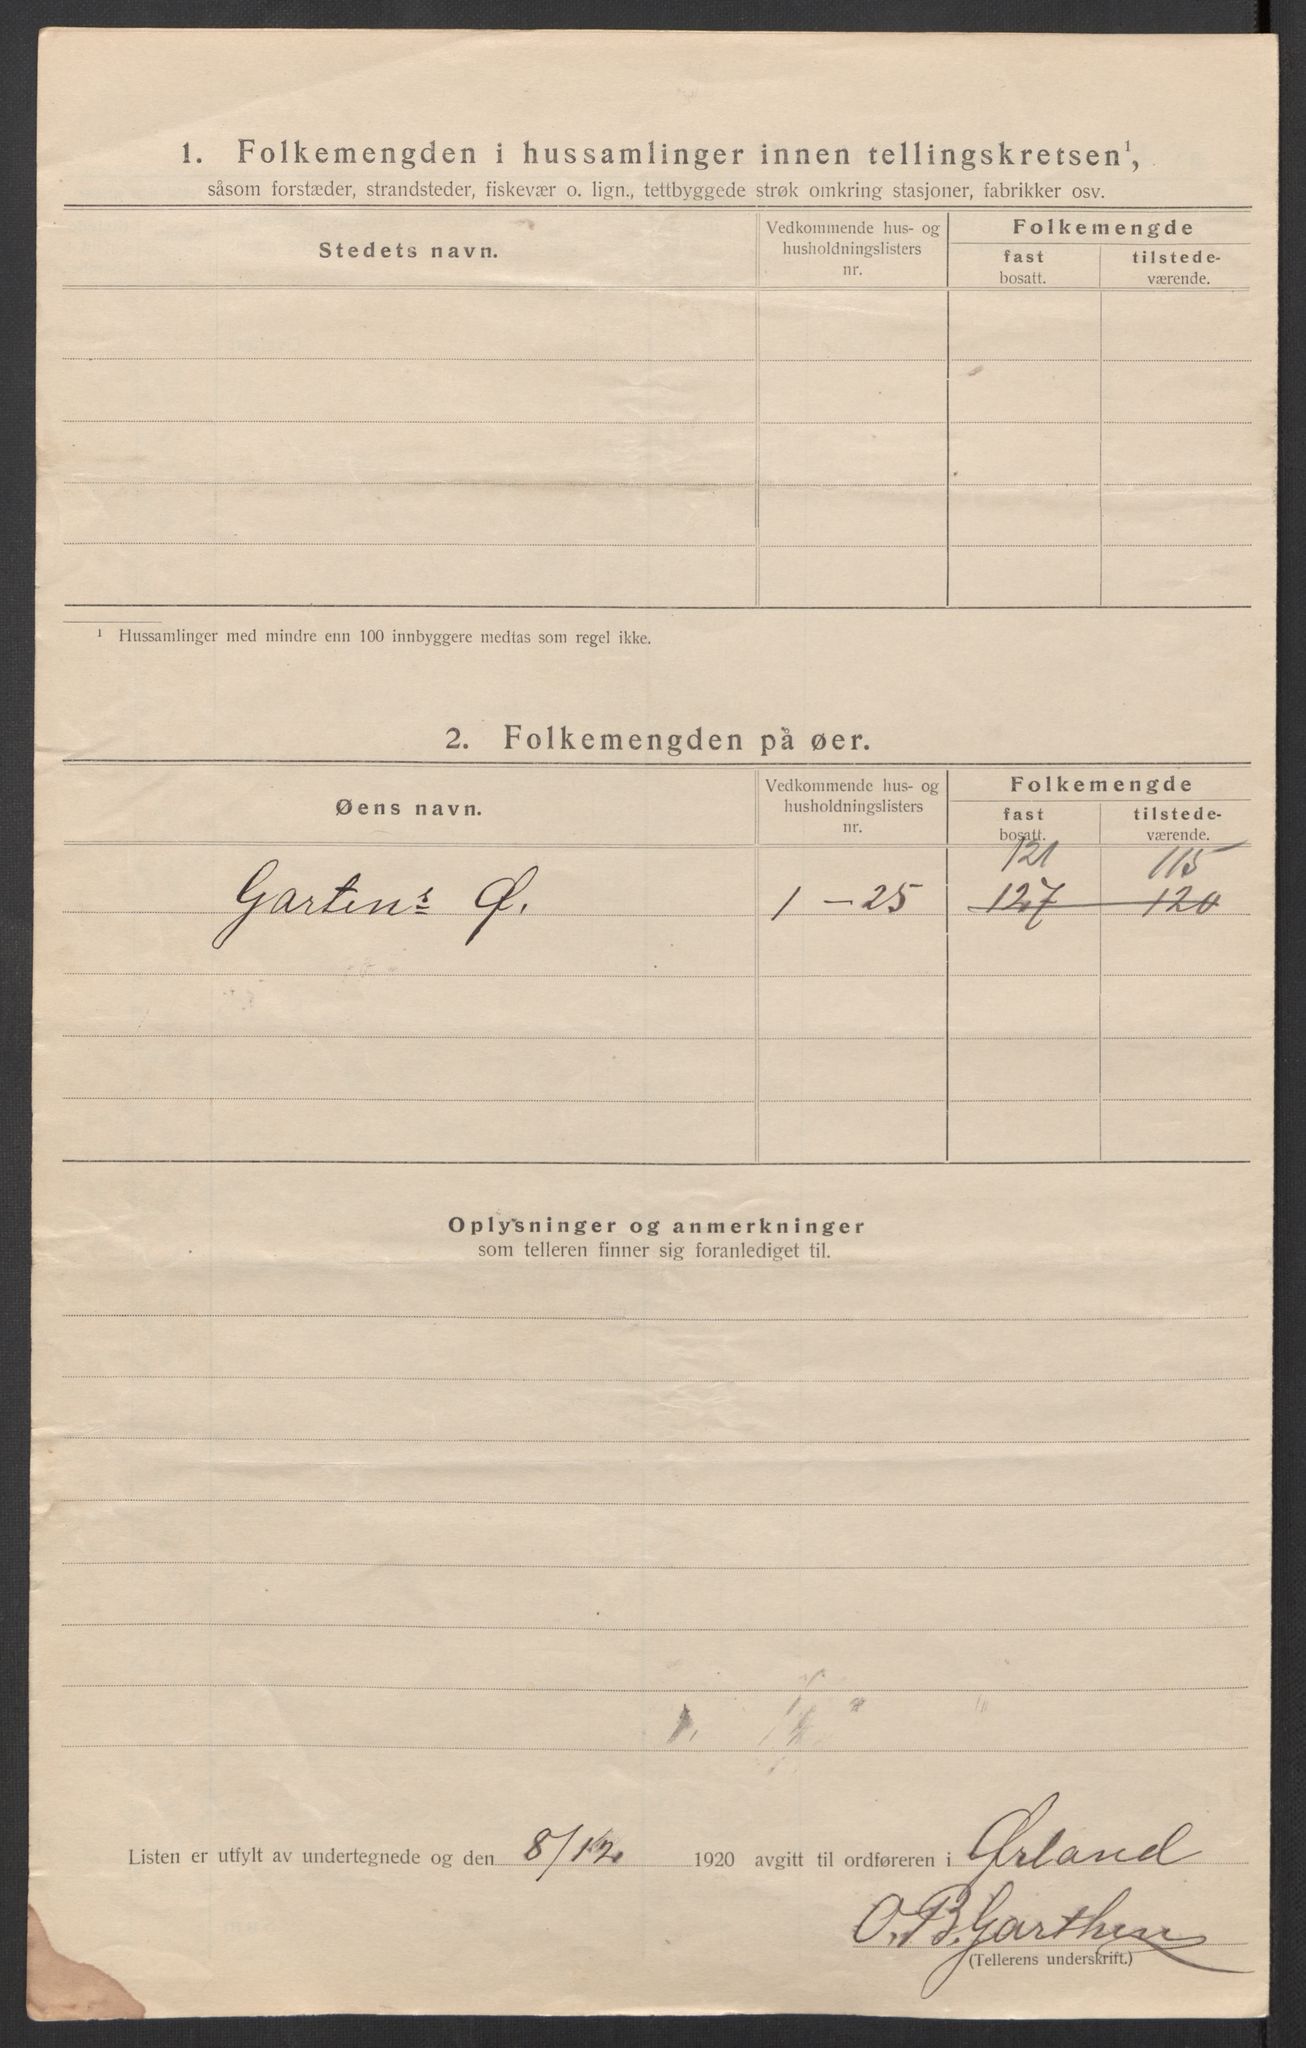 1. Folkemengden i hussamlinger innen tellingskretsen¹,
såsom forstæder, strandsteder, fiskevær o. lign., tettbyggede strøk omkring stasjoner, fabrikker osv.
Stedets navn.
Vedkommende hus- og
husholdningslisters
nr.
Folkemengde
fast
bosatt.
tilstede-
værende.
¹ Hussamlinger med mindre enn 100 innbyggere medtas som regel ikke.
2. Folkemengden på øer.
Øens navn.
Vedkommende hus- og
husholdningslisters
nr.
Folkemengde
fast
bosatt.
tilstede-
værende.
121 115
Gartens Ø. 1 – 25 127 120
Oplysninger og anmerkninger
som telleren finner sig foranlediget til.
Listen er utfylt av undertegnede og den 8/12 1920 avgitt til ordføreren i Ørland
O. B. Garthen
(Tellerens underskrift.)